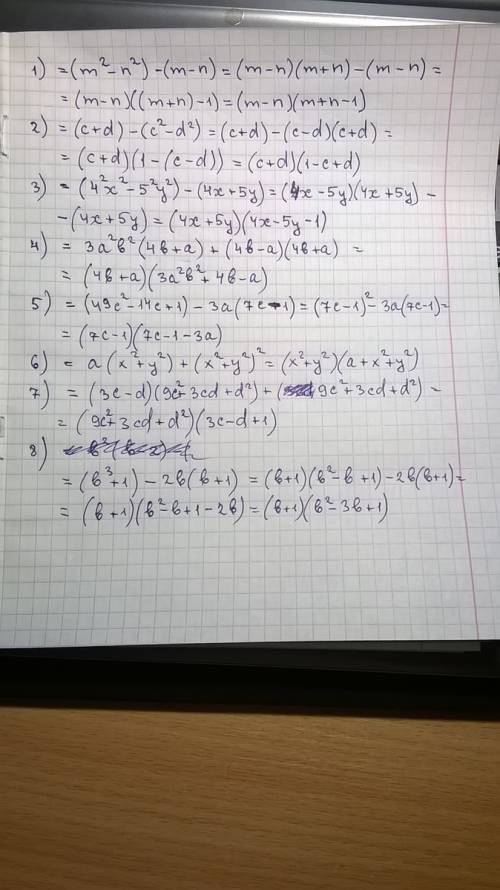 1) =(m²-n²)-(m-n)=(m-n)(m+n)-(m-n)=
=(m-n)((m+n)-1)=(m-n)(m+n-1)
2) =(c+d)-(c²-d²)=(c+d)-(c-d)(c+d)=
=(c+d)(1-(c-d))=(c+d)(1-c+d)
3) =(4²x²-5²y²)-(4x+5y)=(4x-5y)(4x+5y)-
-(4x+5y)=(4x+5y)(4x-5y-1)
4) =3a²в²(4в+a)+(4в-a)(4в+a)=
=(4в+a)(3a²в²+4в-a)
5) =(49c²-14c+1)-3a(7c-1)=(7c-1)²-3a(7c-1)=
=(7c-1)(7c-1-3a)
6) =a(x²+y²)+(x²+y²)²=(x²+y²)(a+x²+y²)
7) =(3c-d)(9c²+3cd+d²)+(9c²+3cd+d²)=
=(9c²+3cd+d²)(3c-d+1)
8)
=(в³+1)-2в(в+1)=(в+1)(в²-в+1)-2в(в+1)=
=(в+1)(в²-в+1-2в)=(в+1)(в²-3в+1)